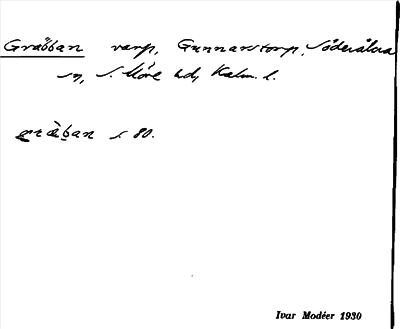 Grabban varp, Gunnarstorp, Söderåkra
sn, S. Möre hd, Kalm. l.
gràb̀an s. 80.
Ivar Modéer 1930